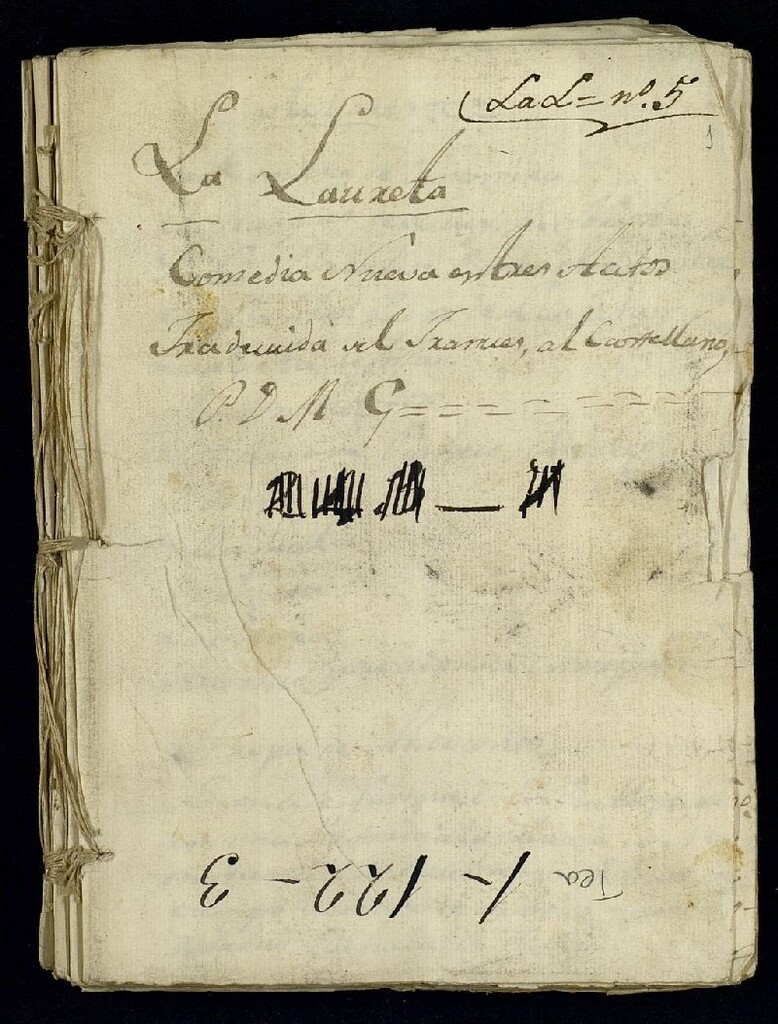 La L = nº. 5
1
La Laureta
Comedia Nueva en tres Actos
Traducida del Frances, al Castellano,
P. D. M. G = = = = = = =
Tea 1-122-3